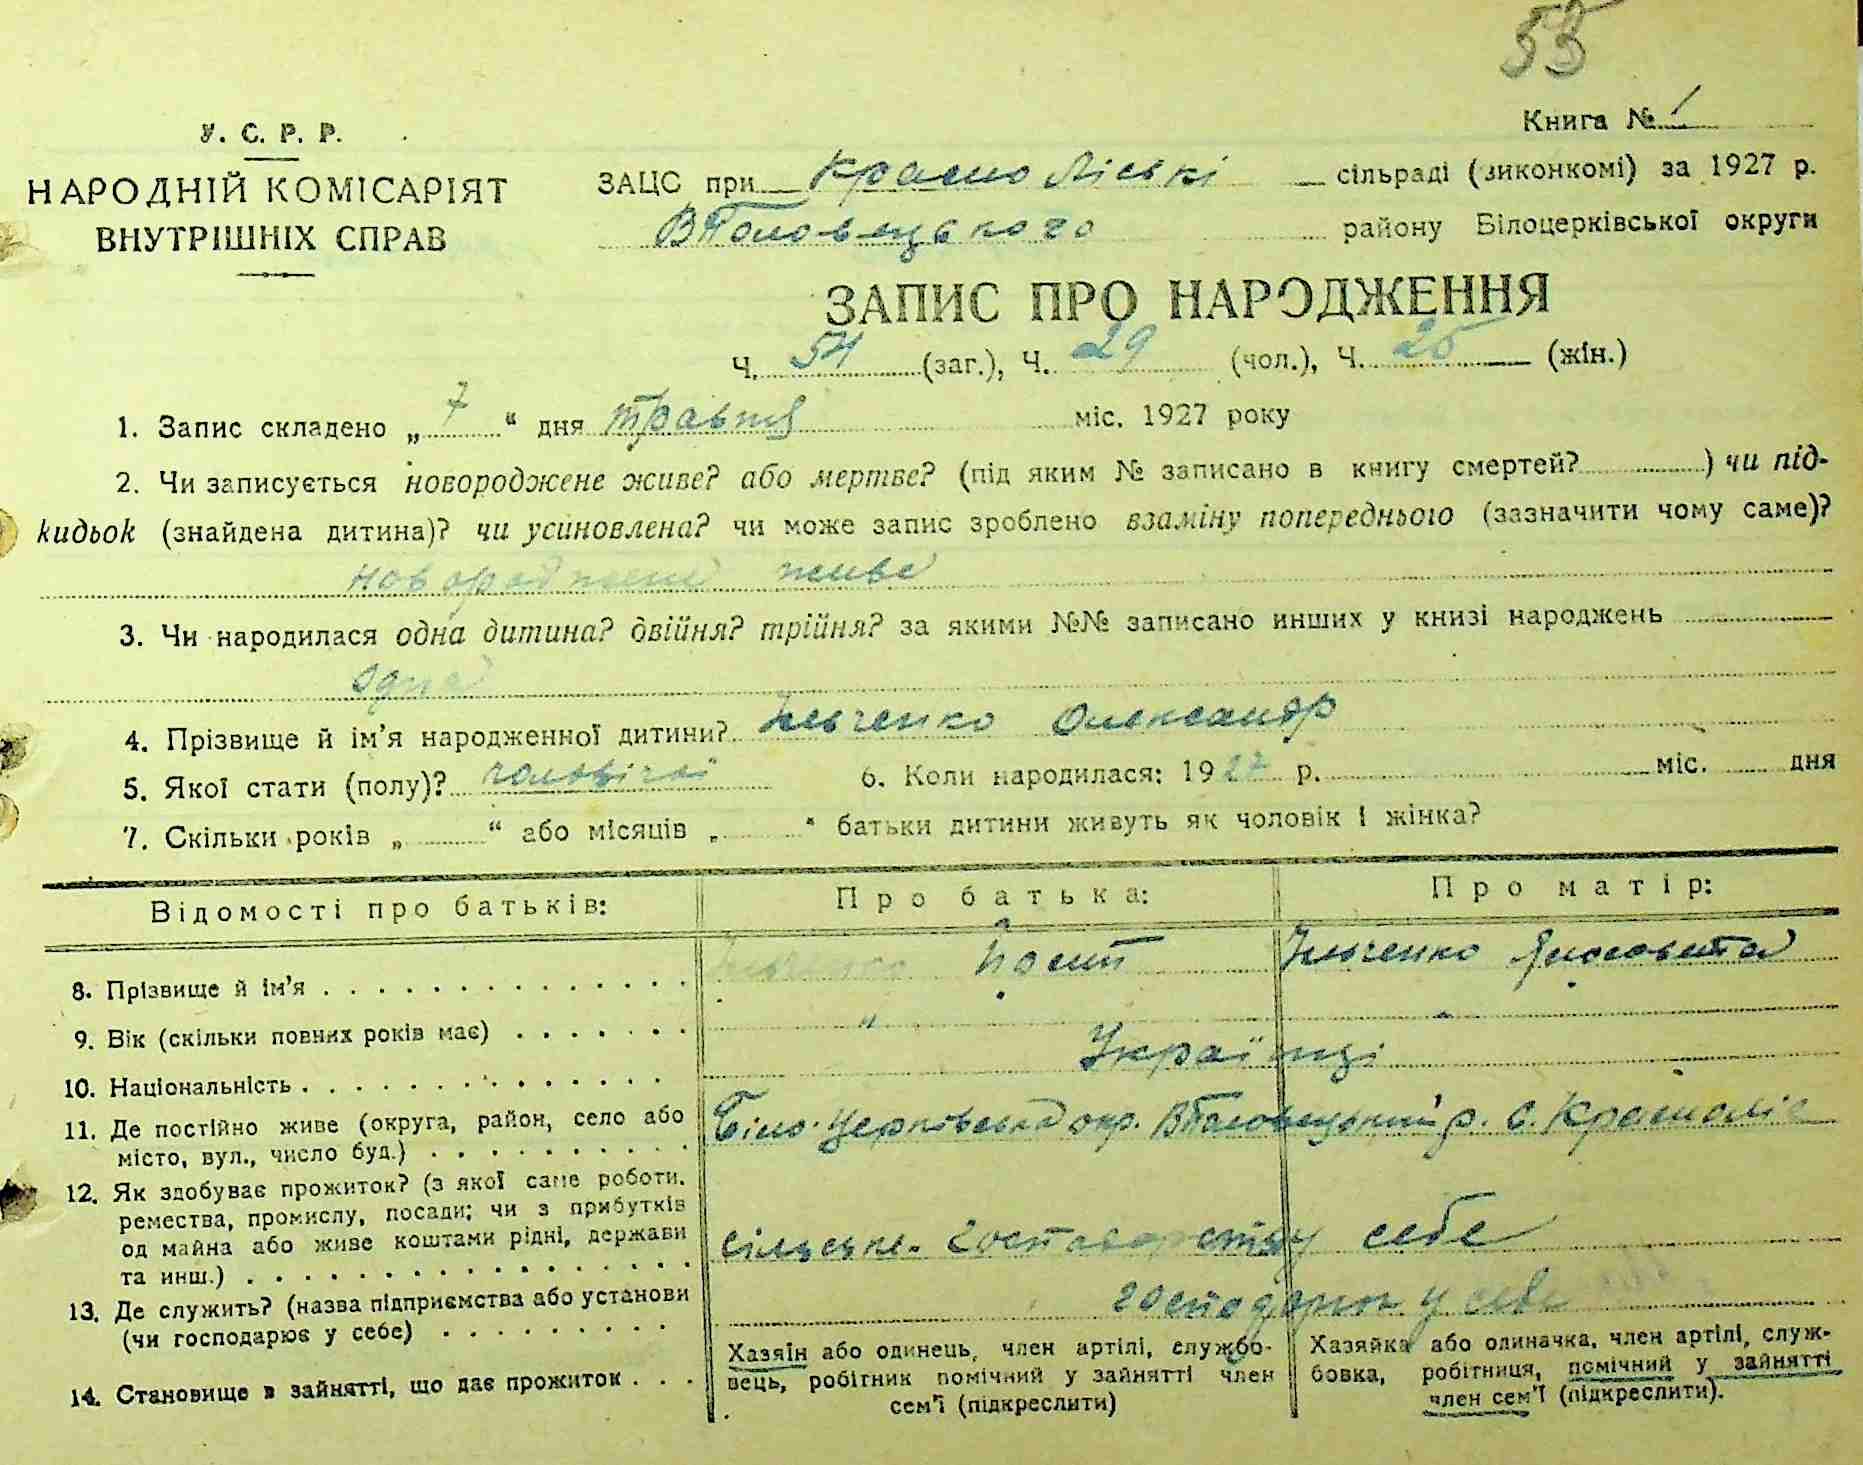 53
Книга № 1
У. С. Р. Р.
НАРОДНІЙ КОМІСАРІЯТ
ВНУТРІШНІХ СПРАВ
ЗАЦС при Краснолівській сільраді (виконкомі) за 1927 р.
ВПоловецького району Білоцерківської округи
ЗАПИС ПРО НАРОДЖЕННЯ
Ч. 54 (заг.), Ч. 29 (чол.), Ч. 25 (жін.)
1. Запис складено „ 7 “ дня травня міс. 1927 року
2. Чи записується новороджене живе? або мертве? (під яким № записано в книгу смертей? ) чи під-
кидьок (знайдена дитина)? чи усиновлена? чи може запис зроблено взаміну попереднього (зазначити чому саме)?
новороджене живе
3. Чи народилася одна дитина? двійня? трійня? за якими №№ записано инших у книзі народжень
одна
4. Прізвище й ім’я народженної дитини? Ільченко Олександр
5. Якої стати (полу)? чоловічої 6. Коли народилася: 1927 р. міс. дня
7. Скільки років „ “ або місяців „ “ батьки дитини живуть як чоловік і жінка?
Відомості про батьків: Про батька: Про матір:
8. Прізвище й ім’я Ільченко Йосип Ільченко
9. Вік (скільки повних років має) "
10. Національність Українці
11. Де постійно живе (округа, район, село або
місто, вул., число буд.) Біло-Церківська окр. ВПоловецький р. с. Красноліс
12. Як здобуває прожиток? (з якої саме роботи,
ремества, промислу, посади; чи з прибутків
од майна або живе коштами рідні, держави
та инш.) сільське господарству себе
13. Де служить? (назва підприємства або установи
(чи господарює у себе) у себе
14. Становище в зайнятті, що дає прожиток
Хазяїн або одинець, член артілі, службо-
вець, робітник помічний у зайнятті член
сем’ї (підкреслити)
Хазяйка або одиначка, член артілі, служ-
бовка, робітниця, помічний у зайнятті
член сем’ї (підкреслити).